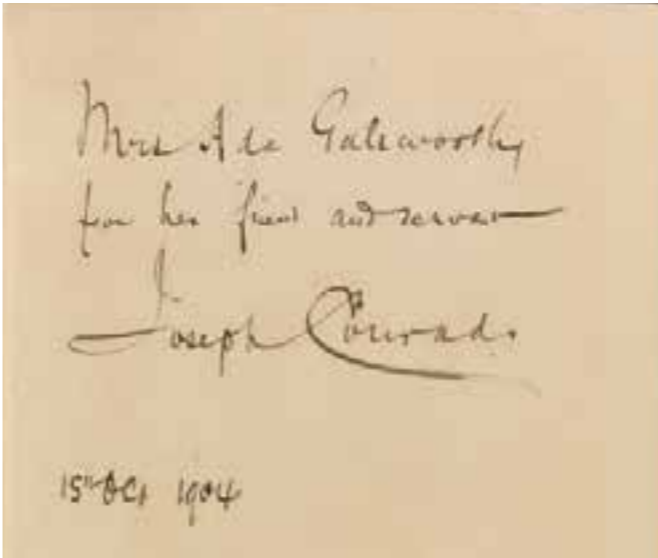 Mrs Ada Galsworthy
from her friend and servant
Joseph Conrad.
15th Oct 1904